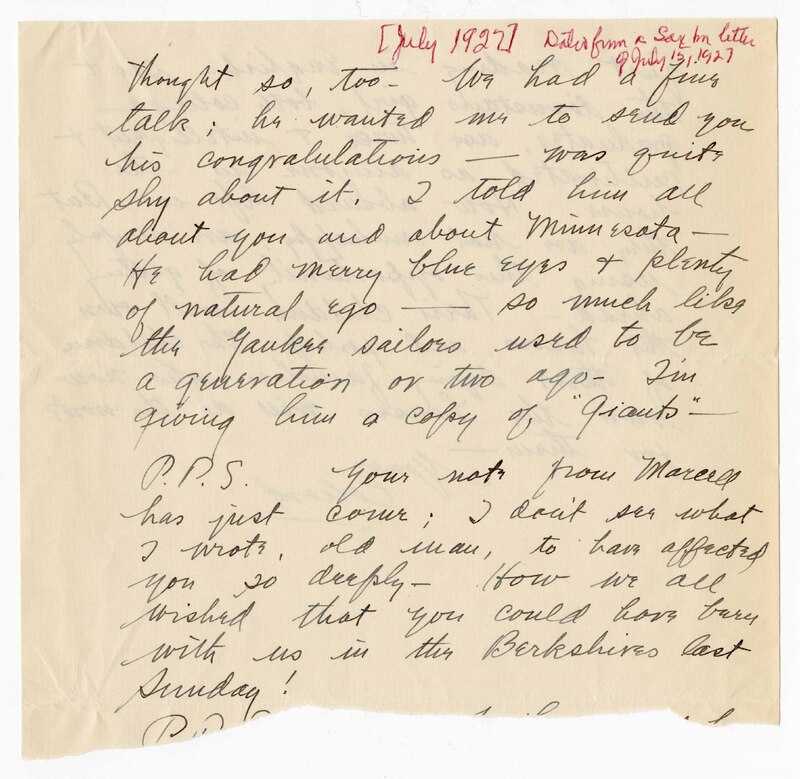 [July 1927] Date from a Saxton letter
of July 15, 1927
thought so, too - We had a fine
talk; he wanted me to send you
his congratulations — was quite
shy about it. I told him all
about you and about Minnesota —
He had merry blue eyes + plenty
of natural ego — so much like
the Yankee sailors used to be
a generation or two ago - I'm
giving him a copy of "Giants" —
P.P.S. Your note from Marcell
has just come; I don't see what
I wrote, old man, to have affected
you so deeply - How we all
wished that you could have been
with us in the Berkshires last
Sunday!